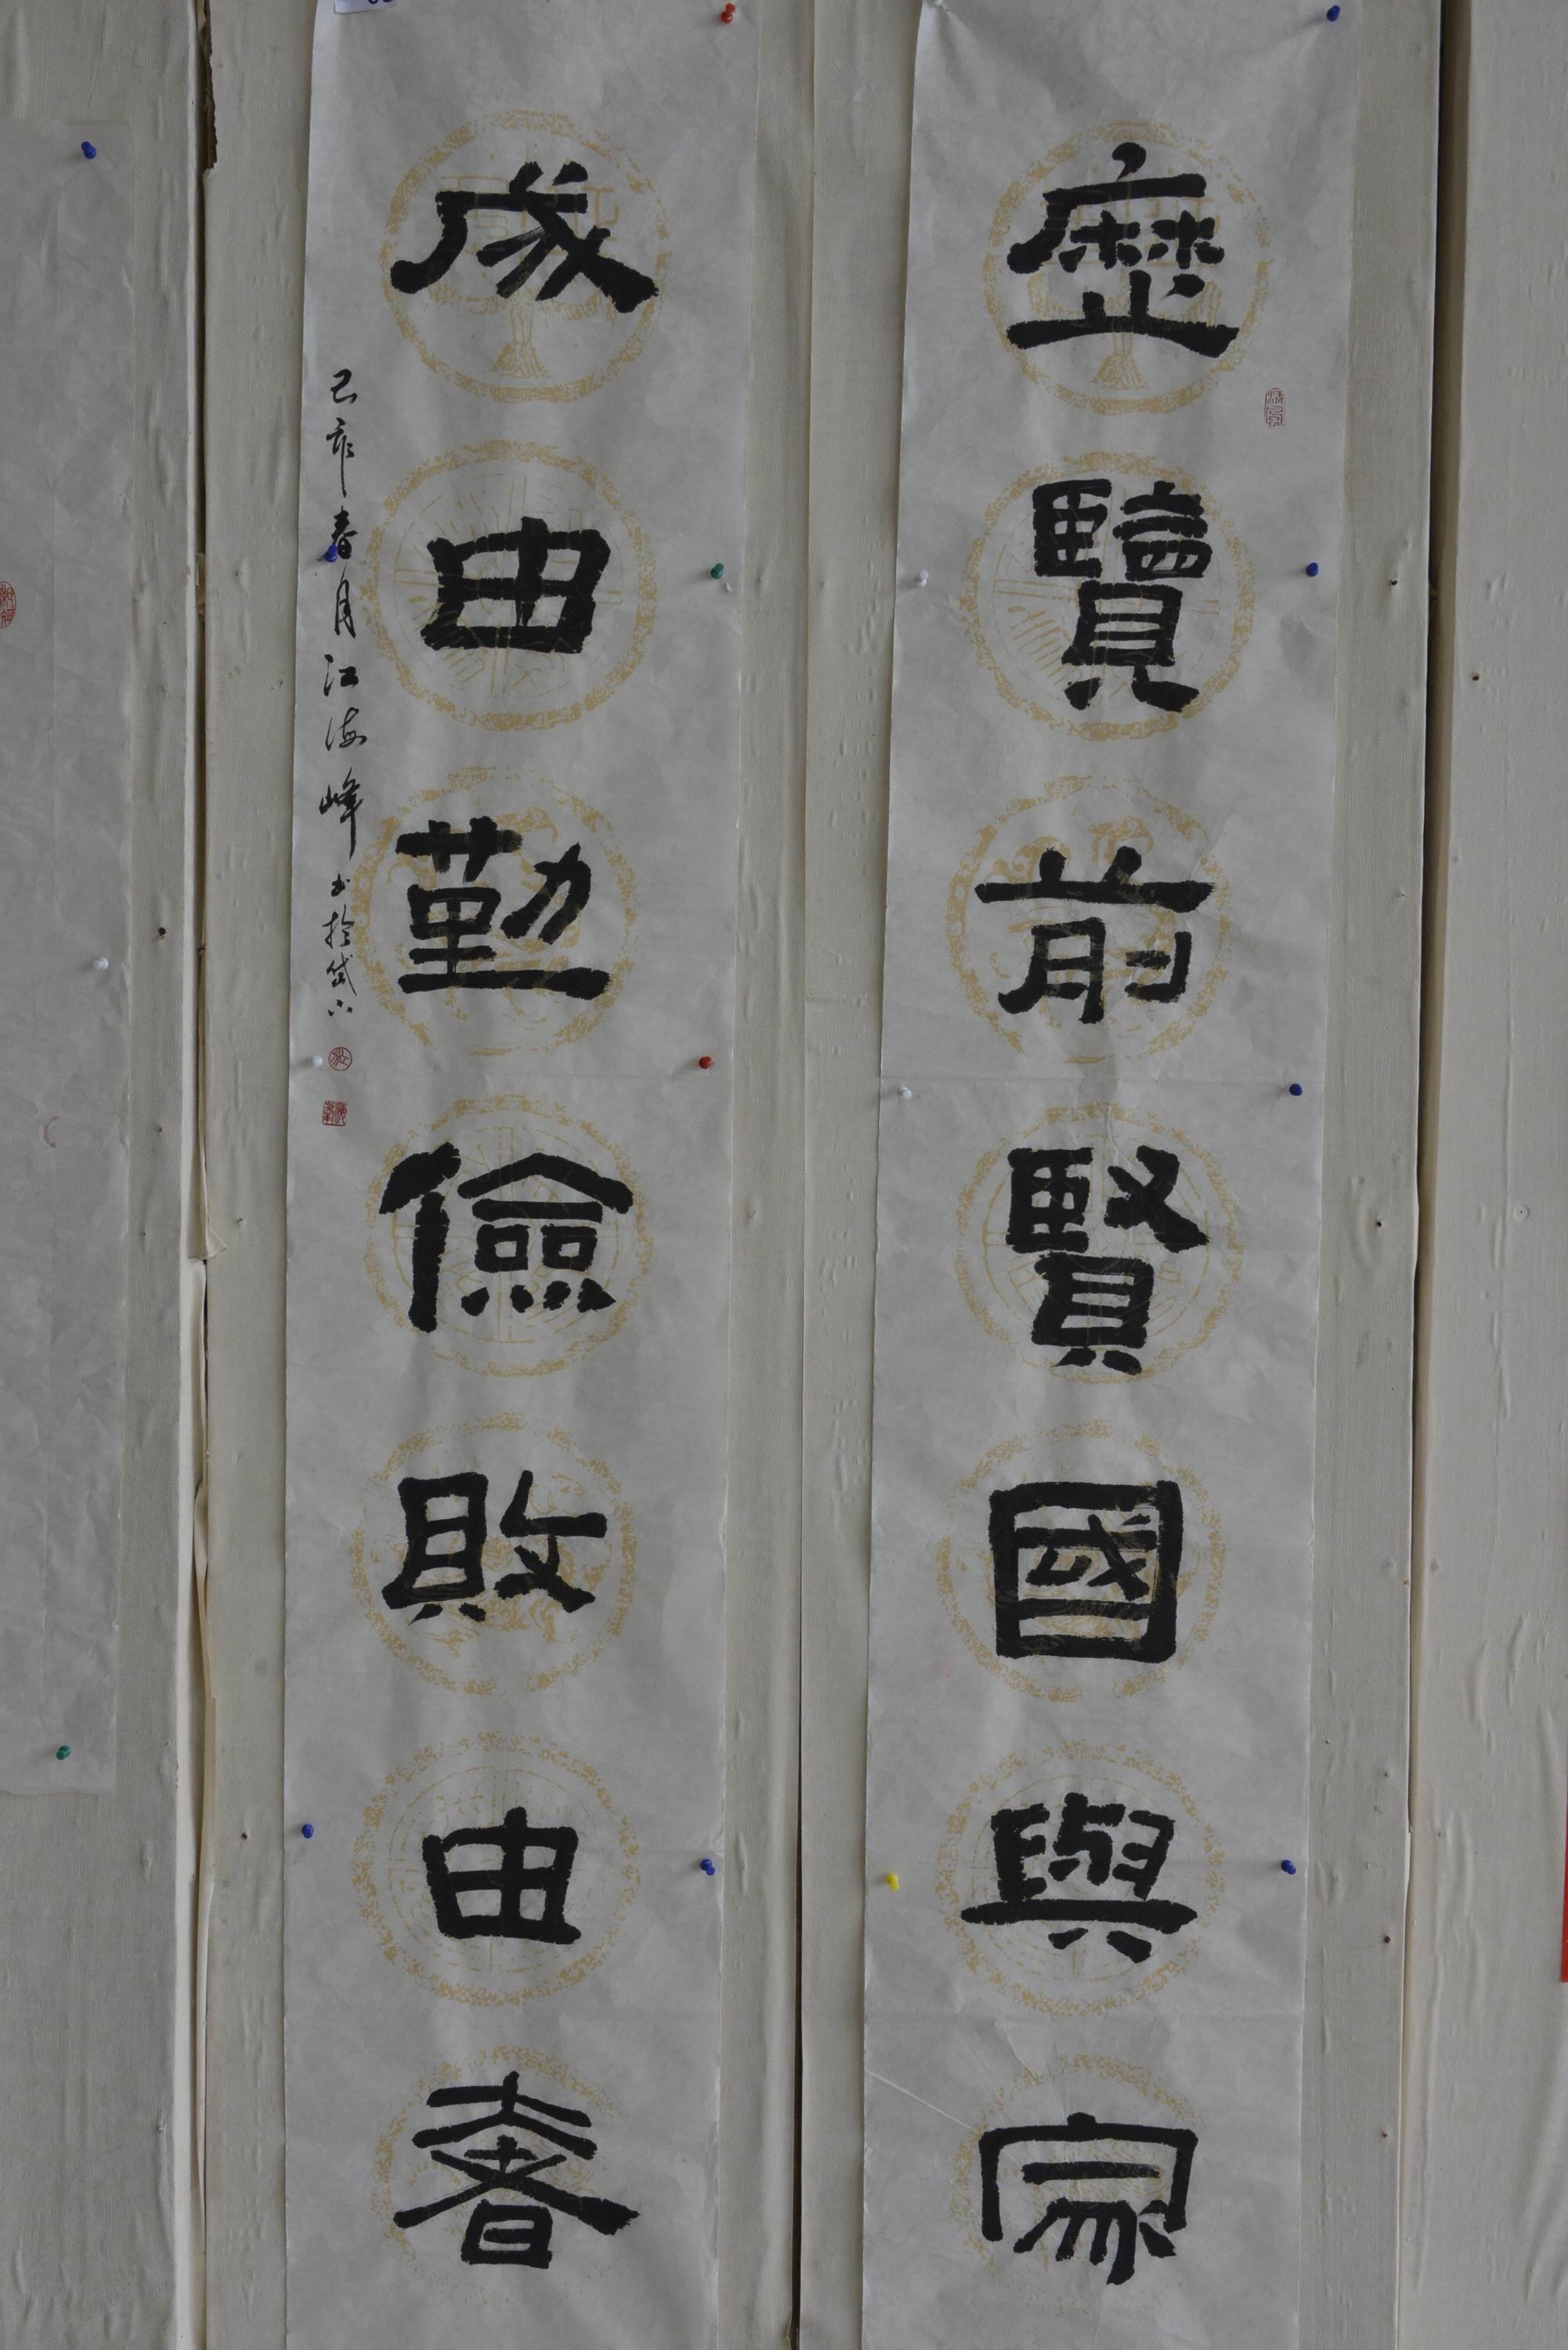 歷覽前賢國與家
成由勤儉敗由奢
己亥春月江海峰书於岱下